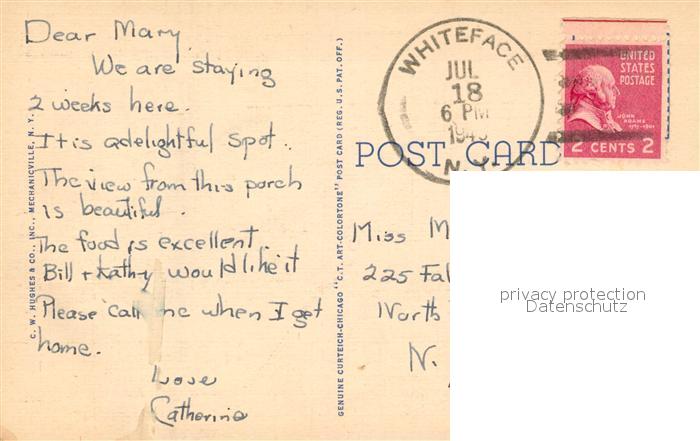 Dear Mary
We are staying
2 weeks here.
It is a delightful spot.
The view from this porch
is beautiful.
The food is excellent.
Bill + Kathy would like it
Please call me when I get
home.
Love
Catherine
C. W. HUGHES & CO., INC., MECHANICVILLE, N. Y.
GENUINE CURTEICH-CHICAGO "C.T. ART-COLORTONE" POST CARD (REG. U.S. PAT. OFF.)
WHITEFACE
JUL
18
6 PM
N.Y.
UNITED
STATES
POSTAGE
JOHN
ADAMS
2 CENTS 2
POST CARD
Miss M
225 Fal
North
N.
privacy protection
Datenschutz